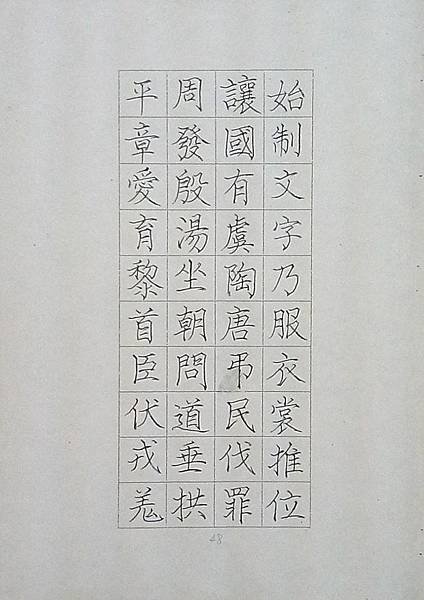 始制文字乃服衣裳推位
讓國有虞陶唐弔民伐罪
周發殷湯坐朝問道垂拱
平章愛育黎首臣伏戎羌
48